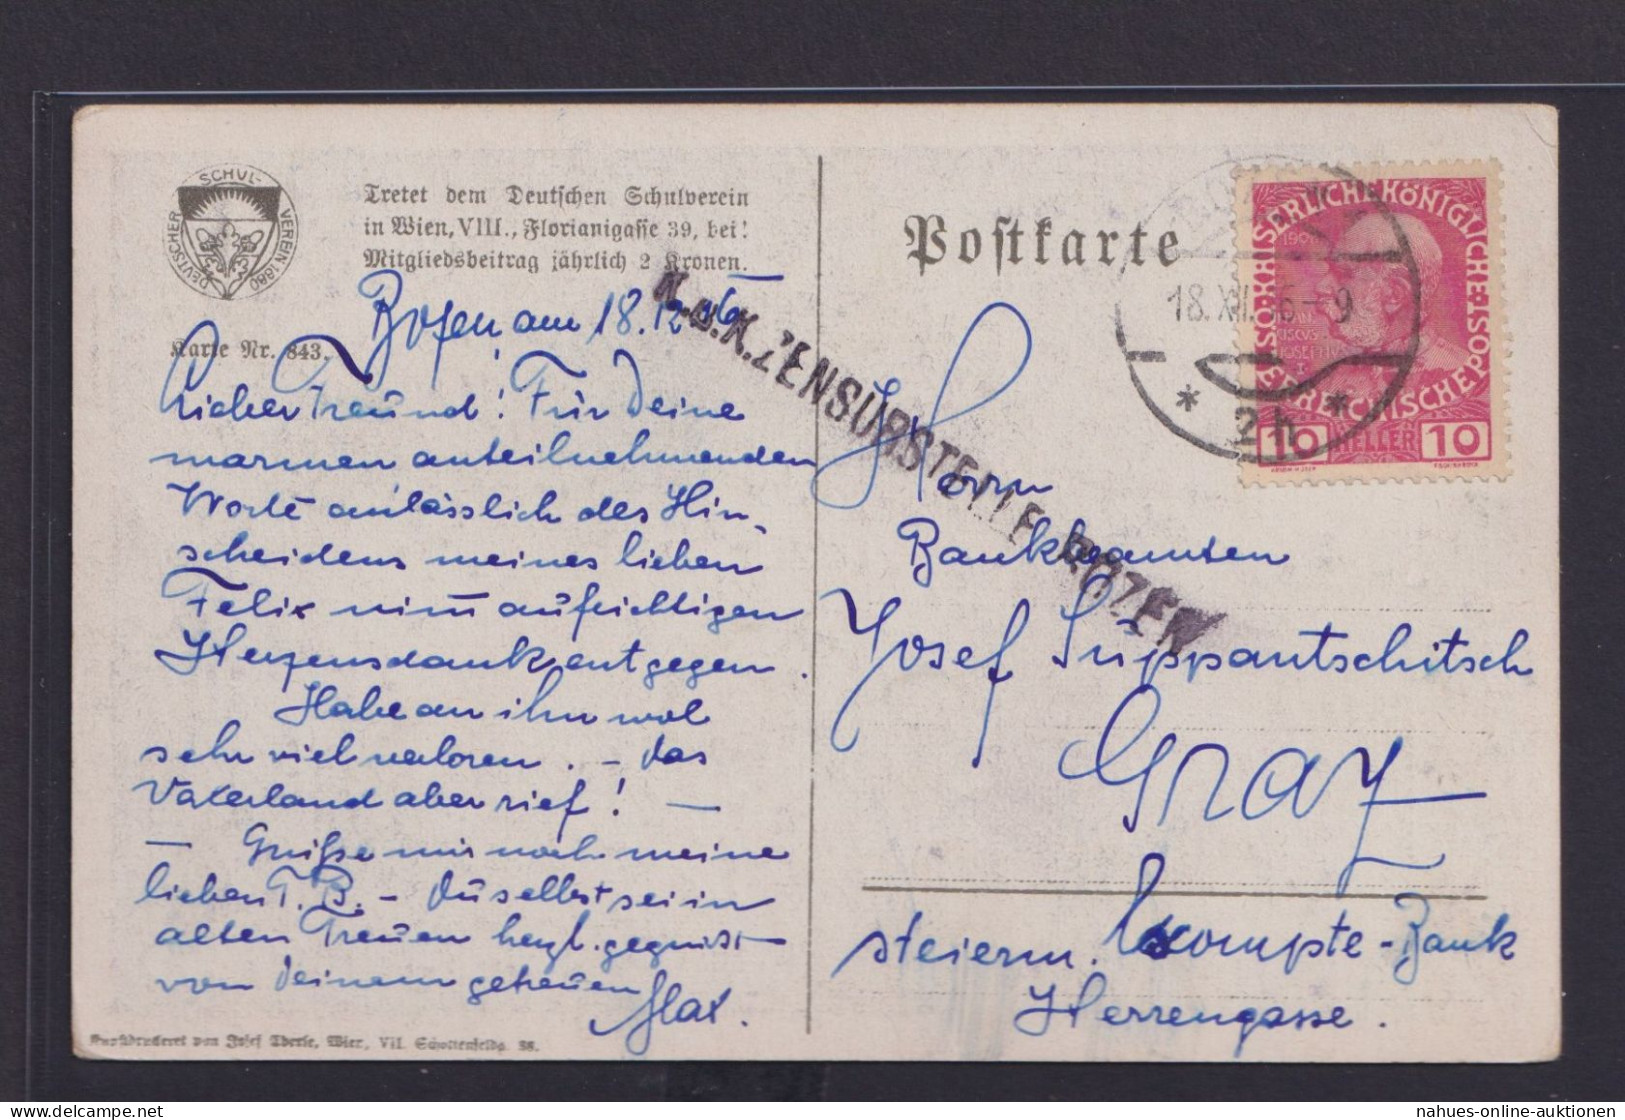 DEUTSCHER SCHVL-VEREIN 1880
Tretet dem Deutschen Schulverein
in Wien, VIII., Florianigasse 39, bei!
Mitgliedsbeitrag jährlich 2 Kronen.
Karte Nr. 843.
Bozen, am 18.12.16
Lieber Freund! Für Deine
warmen anteilnehmenden
Worte anlässlich des Hin-
scheidens meines lieben
Felix nim aufrichtigen
Herzensdank entgegen.
Habe an ihm wol
sehr viel verloren. – Das
Vaterland aber rief! –
– Grüsse mir noch meine
lieben T. B. – Du selbst sei in
alten Treuen herzl. gegrüsst
von Deinem getreuen
Max.
Kunstdruckerei von Josef Eberle, Wien, VII. Schottenfeldg. 38.
K.u.K. ZENSURSTELLE BOZEN
Postkarte
18.XII.16–9
* 2h *
KAISERLICHE KÖNIGLICHE ÖSTERREICHISCHE POST
10 HELLER 10
Herrn
Bankbeamten
Josef Suppantschitsch
Graz
steierm. Eskompte-Bank
Herrengasse.
nahues-online-auktionen